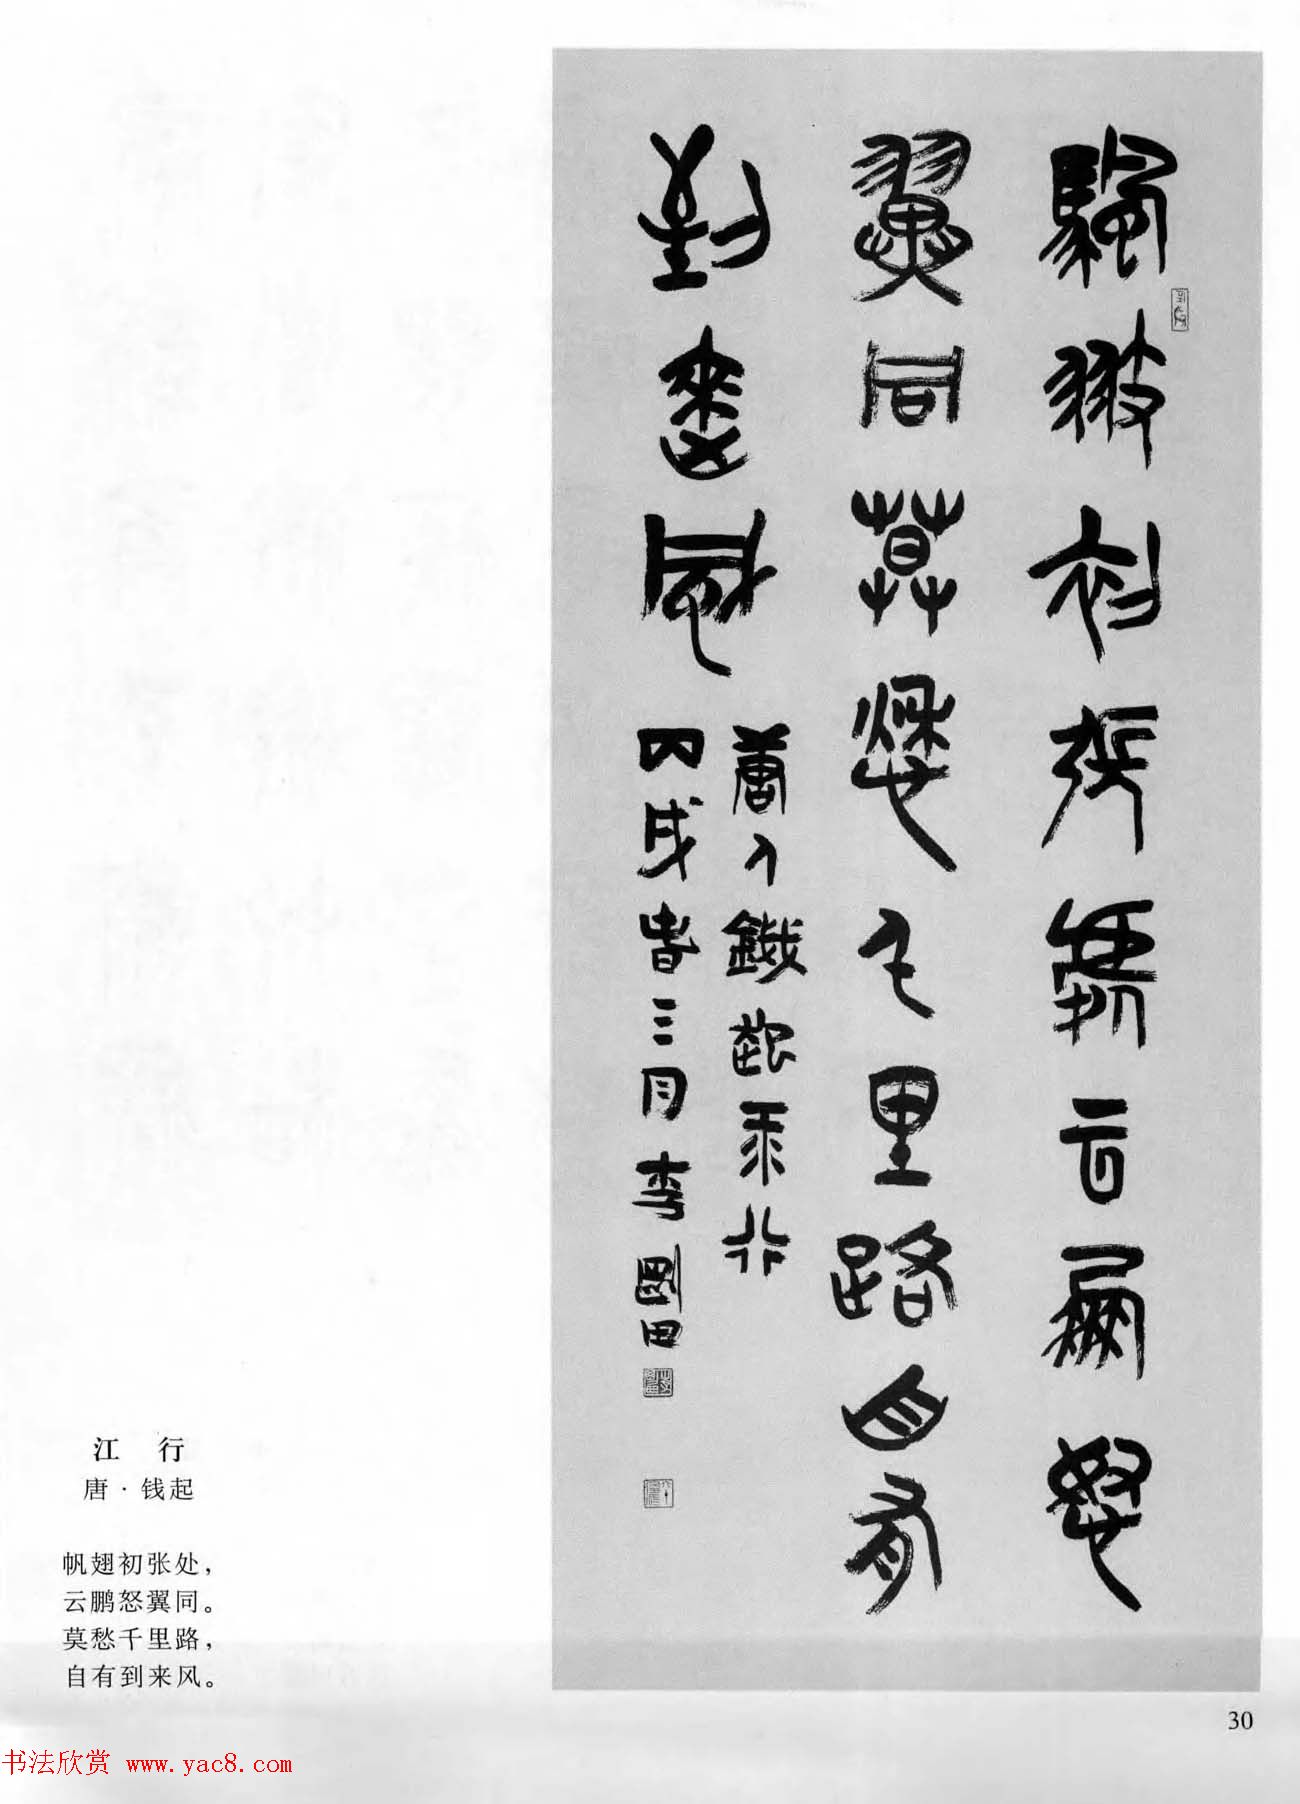 帆翅初張處云鵬怒
翼同莫愁千里路自有
到來風
唐人錢起江行
丙戌春三月李剛田
江 行
唐·钱起
帆翅初张处，
云鹏怒翼同。
莫愁千里路，
自有到来风。
30
书法欣赏 www.yac8.com